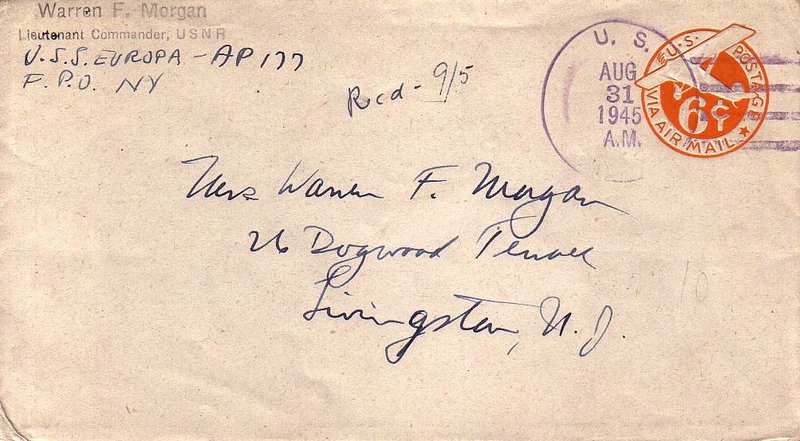 Warren F. Morgan
Lieutenant Commander, USNR
U.S.S. EUROPA - AP 177
F.P.O. NY
Rcd - 9/5
U. S.
AUG
31
1945
A.M.
U.S. POSTAGE
6¢
VIA AIR MAIL
Mrs Warren F. Morgan
26 Dogwood Terrace
Livingston, N. J.
10